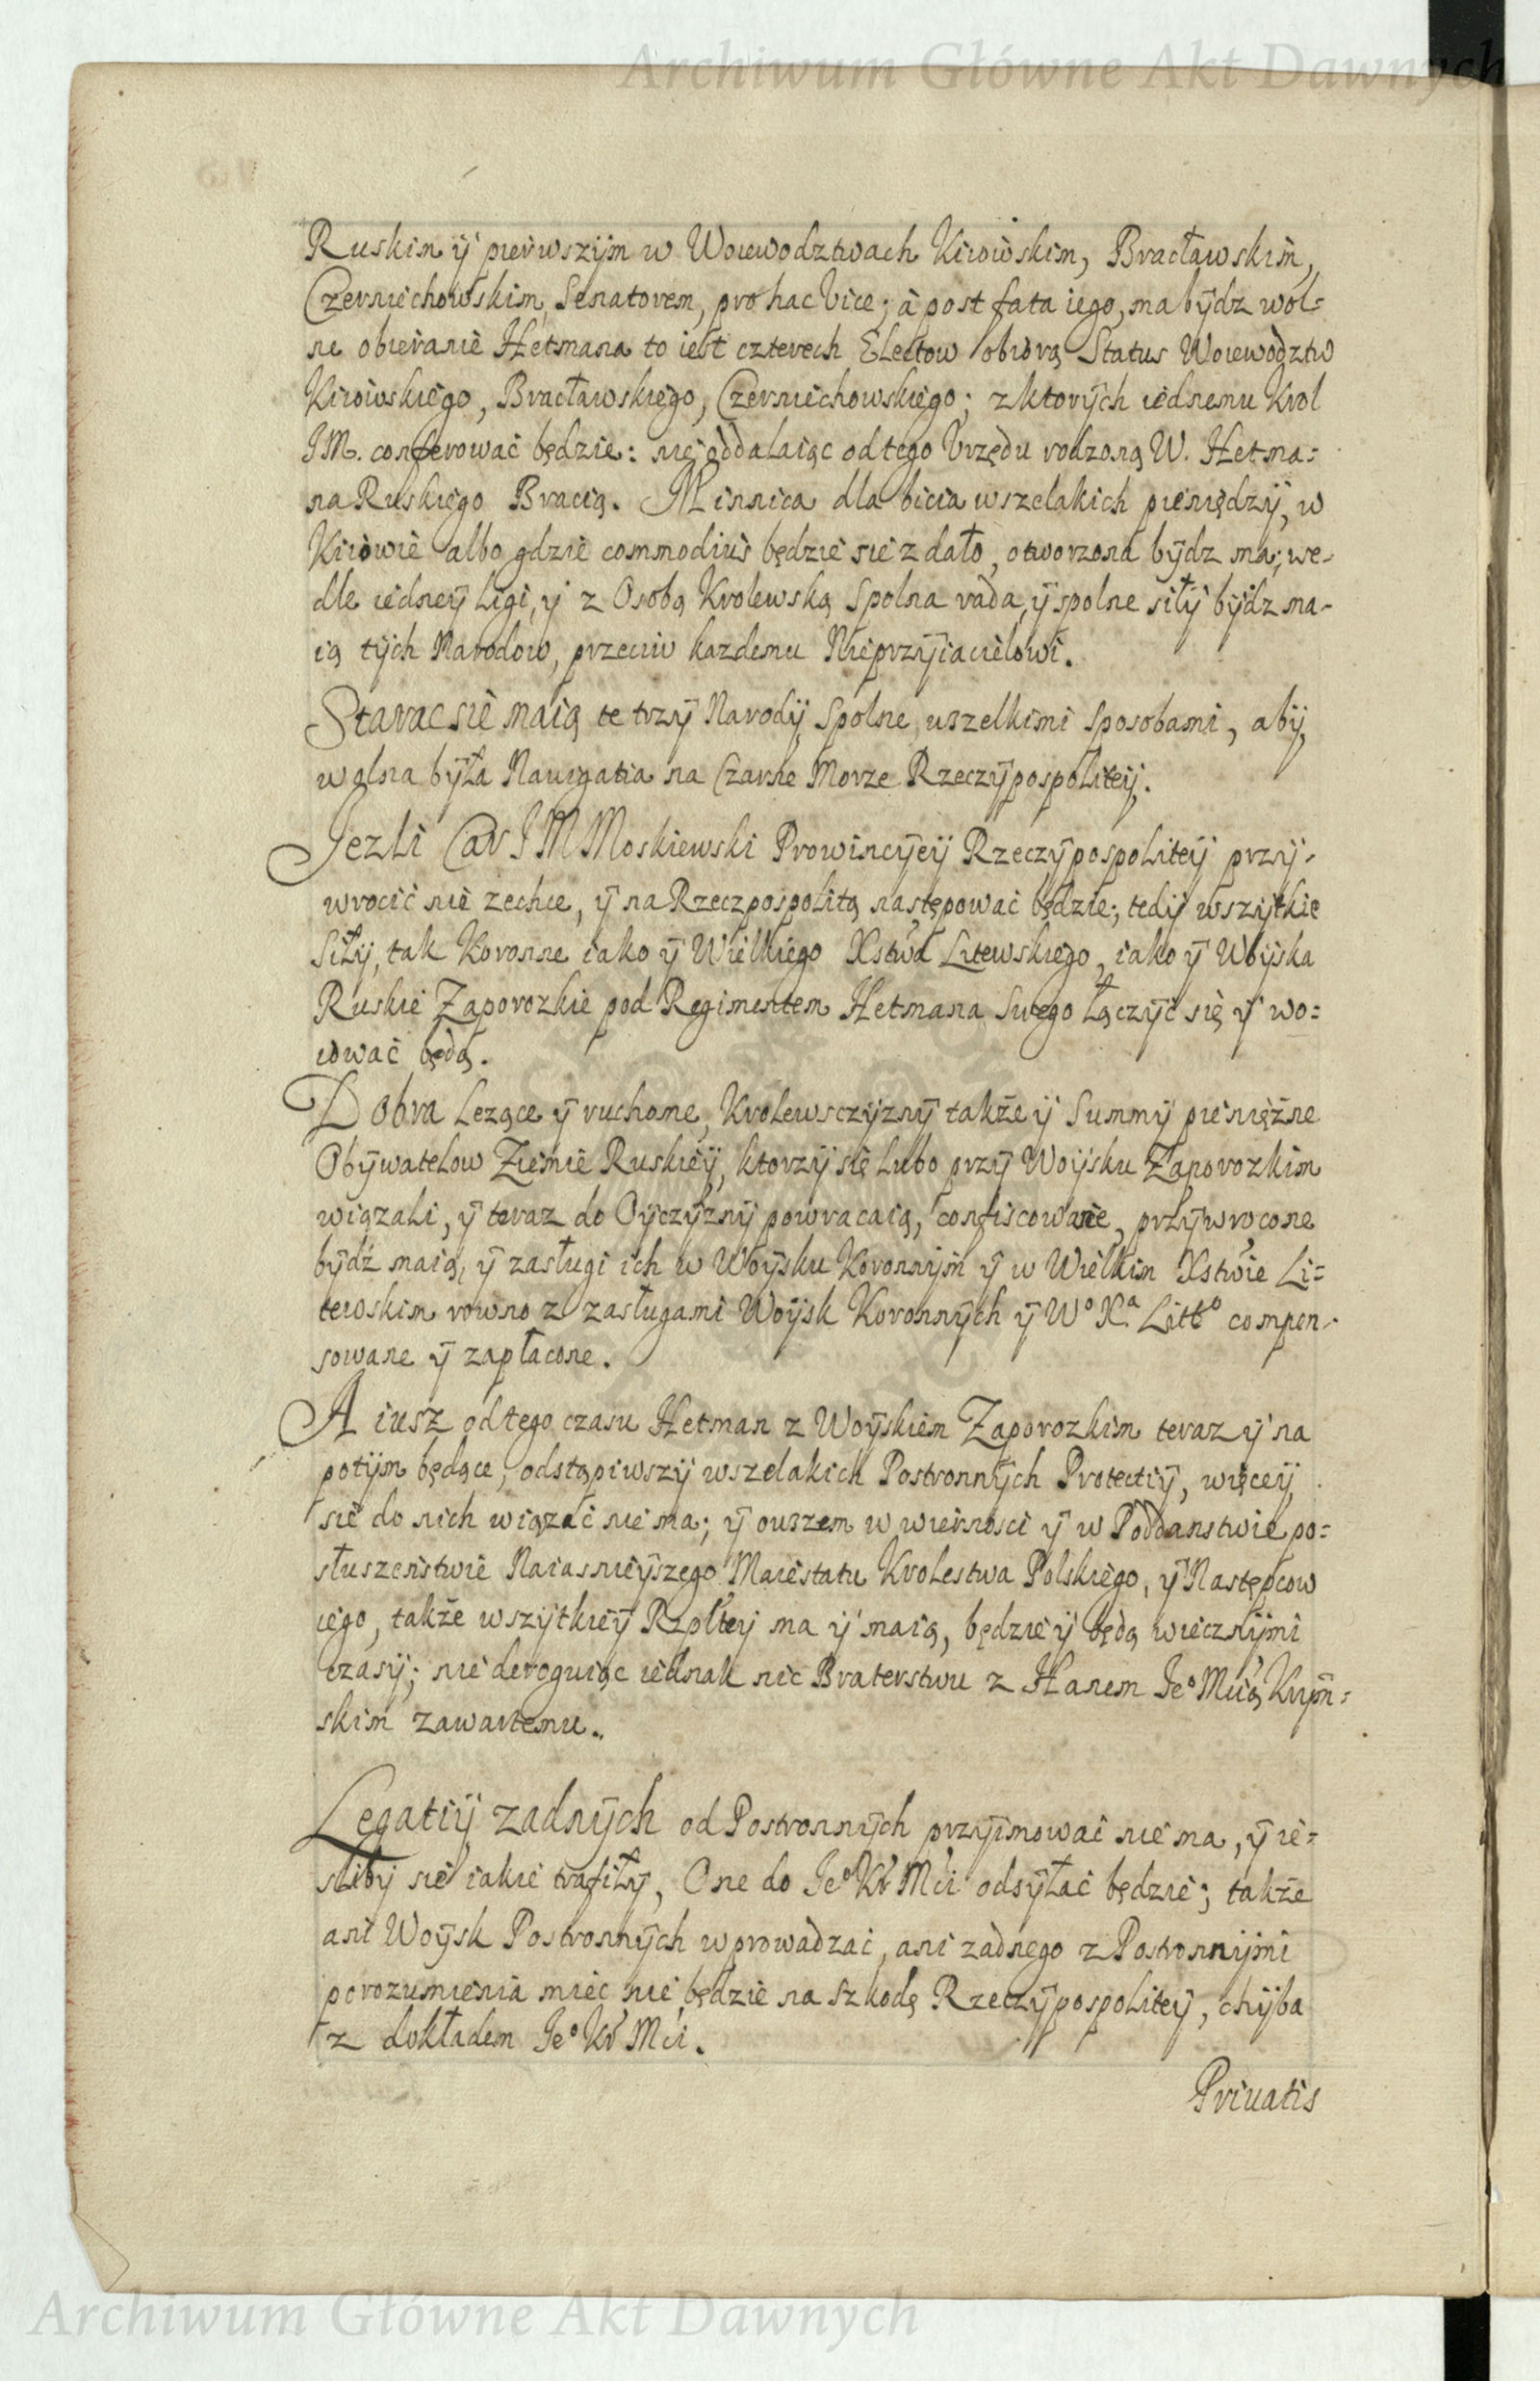 Archiwum Główne Akt Dawnych
Ruskim ÿ pierwszÿm w Woiewodztwach Kiiowskim, Bracławskim,
Czerniechowskim, Senatorem, pro hac Vice; à post fata iego, ma bÿdz wol=
ne obieranie Hetmana to iest czterech Electow obiorą Status Woiewodztw
Kiiowskiego, Bracławskiego, Czerniechowskiego; z ktorÿch iednemu Krol
JM. conferować będzie: nie oddalaiąc od tego Vrzędu rodzoną W. Hetma=
na Ruskiego Bracią. Minnica dla bicia wszelakich pieniędzÿ, w
Kiiowie albo gdzie commodius będzie sie zdało, otworzona bÿdz ma; we-
dle iedneÿ Ligi, ÿ z Osobą Krolewską Spolna rada, ÿ spolne siłÿ bÿdz ma-
ią tÿch Narodow, przeciw kazdemu Nieprzÿiacielowi.
Starac sie maią te trzÿ Narodÿ Spolne uszelkimi Sposobami, abÿ
wolna bÿła Nauigatia na Czarne Morze Rzeczÿpospoliteÿ.
Jezli Car JM Moskiewski Prowincÿeÿ Rzeczÿpospoliteÿ przÿ-
wrocić nie zechce, ÿ na Rzeczpospolitą następować będzie; tedÿ wszÿtkie
Siłÿ, tak Koronne iako ÿ Wielkiego Xstwa Litewskiego, iako ÿ Woÿska
Ruskie Zaporozkie pod Regimentem Hetmana Swego Łączÿć się ÿ wo=
iować będą.
Dobra Lezące ÿ ruchome, Krolewsczÿznÿ także ÿ Summÿ pieniężne
Obÿwatelow Ziemie Ruskieÿ, ktorzÿ się Lubo przÿ Woÿsku Zaporozkim
wiązali, ÿ teraz do Oÿczÿznÿ powracaią, confiscowane, przÿwrocone
bÿdź maią, ÿ zasługi ich w Woÿsku Koronnÿm ÿ w Wielkim Xstwie Li=
tewskim rowno z zasługami Woÿsk Koronnÿch ÿ Wº Xª Littº compen-
sowane ÿ zapłacone.
A iusz od tego czasu Hetman z Woÿskiem Zaporozkim teraz ÿ na
potÿm będące, odstąpiwszÿ wszelakich Postronnÿch Protectiÿ, więceÿ
sie do nich wiązać nie ma; ÿ ouszem w wiernosci ÿ w Poddanstwie po=
słuszeństwie Naiasnieÿszego Maiestatu Krolestwa Polskiego, ÿ Następcow
iego, także wszÿtkieÿ Rzpłteÿ ma ÿ maią, będzie ÿ będą wiecznÿmi
czasÿ; nie deroguiąc iednak nic Braterstwu z Hanem Jeº Mcią Krÿm=
skim zawartemu.
Legatiÿ zadnÿch od Postronnÿch przÿimować nie ma, ÿ ie=
slibÿ sie iakie trafiłÿ, One do Jeº Kr Mci odsÿłać będzie; także
ani Woÿsk Postronnÿch wprowadzać, ani zadnego z Postronnÿmi
porozumienia miec nie będzie na szkodę Rzeczÿpospoliteÿ, chÿba
z dokładem Jeº Kr Mci.
Priuatis
Archiwum Główne Akt Dawnych